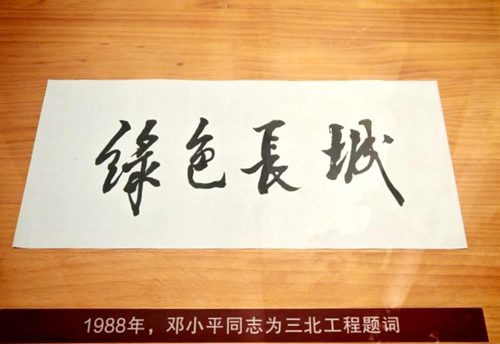 綠色長城
1988年，邓小平同志为三北工程题词